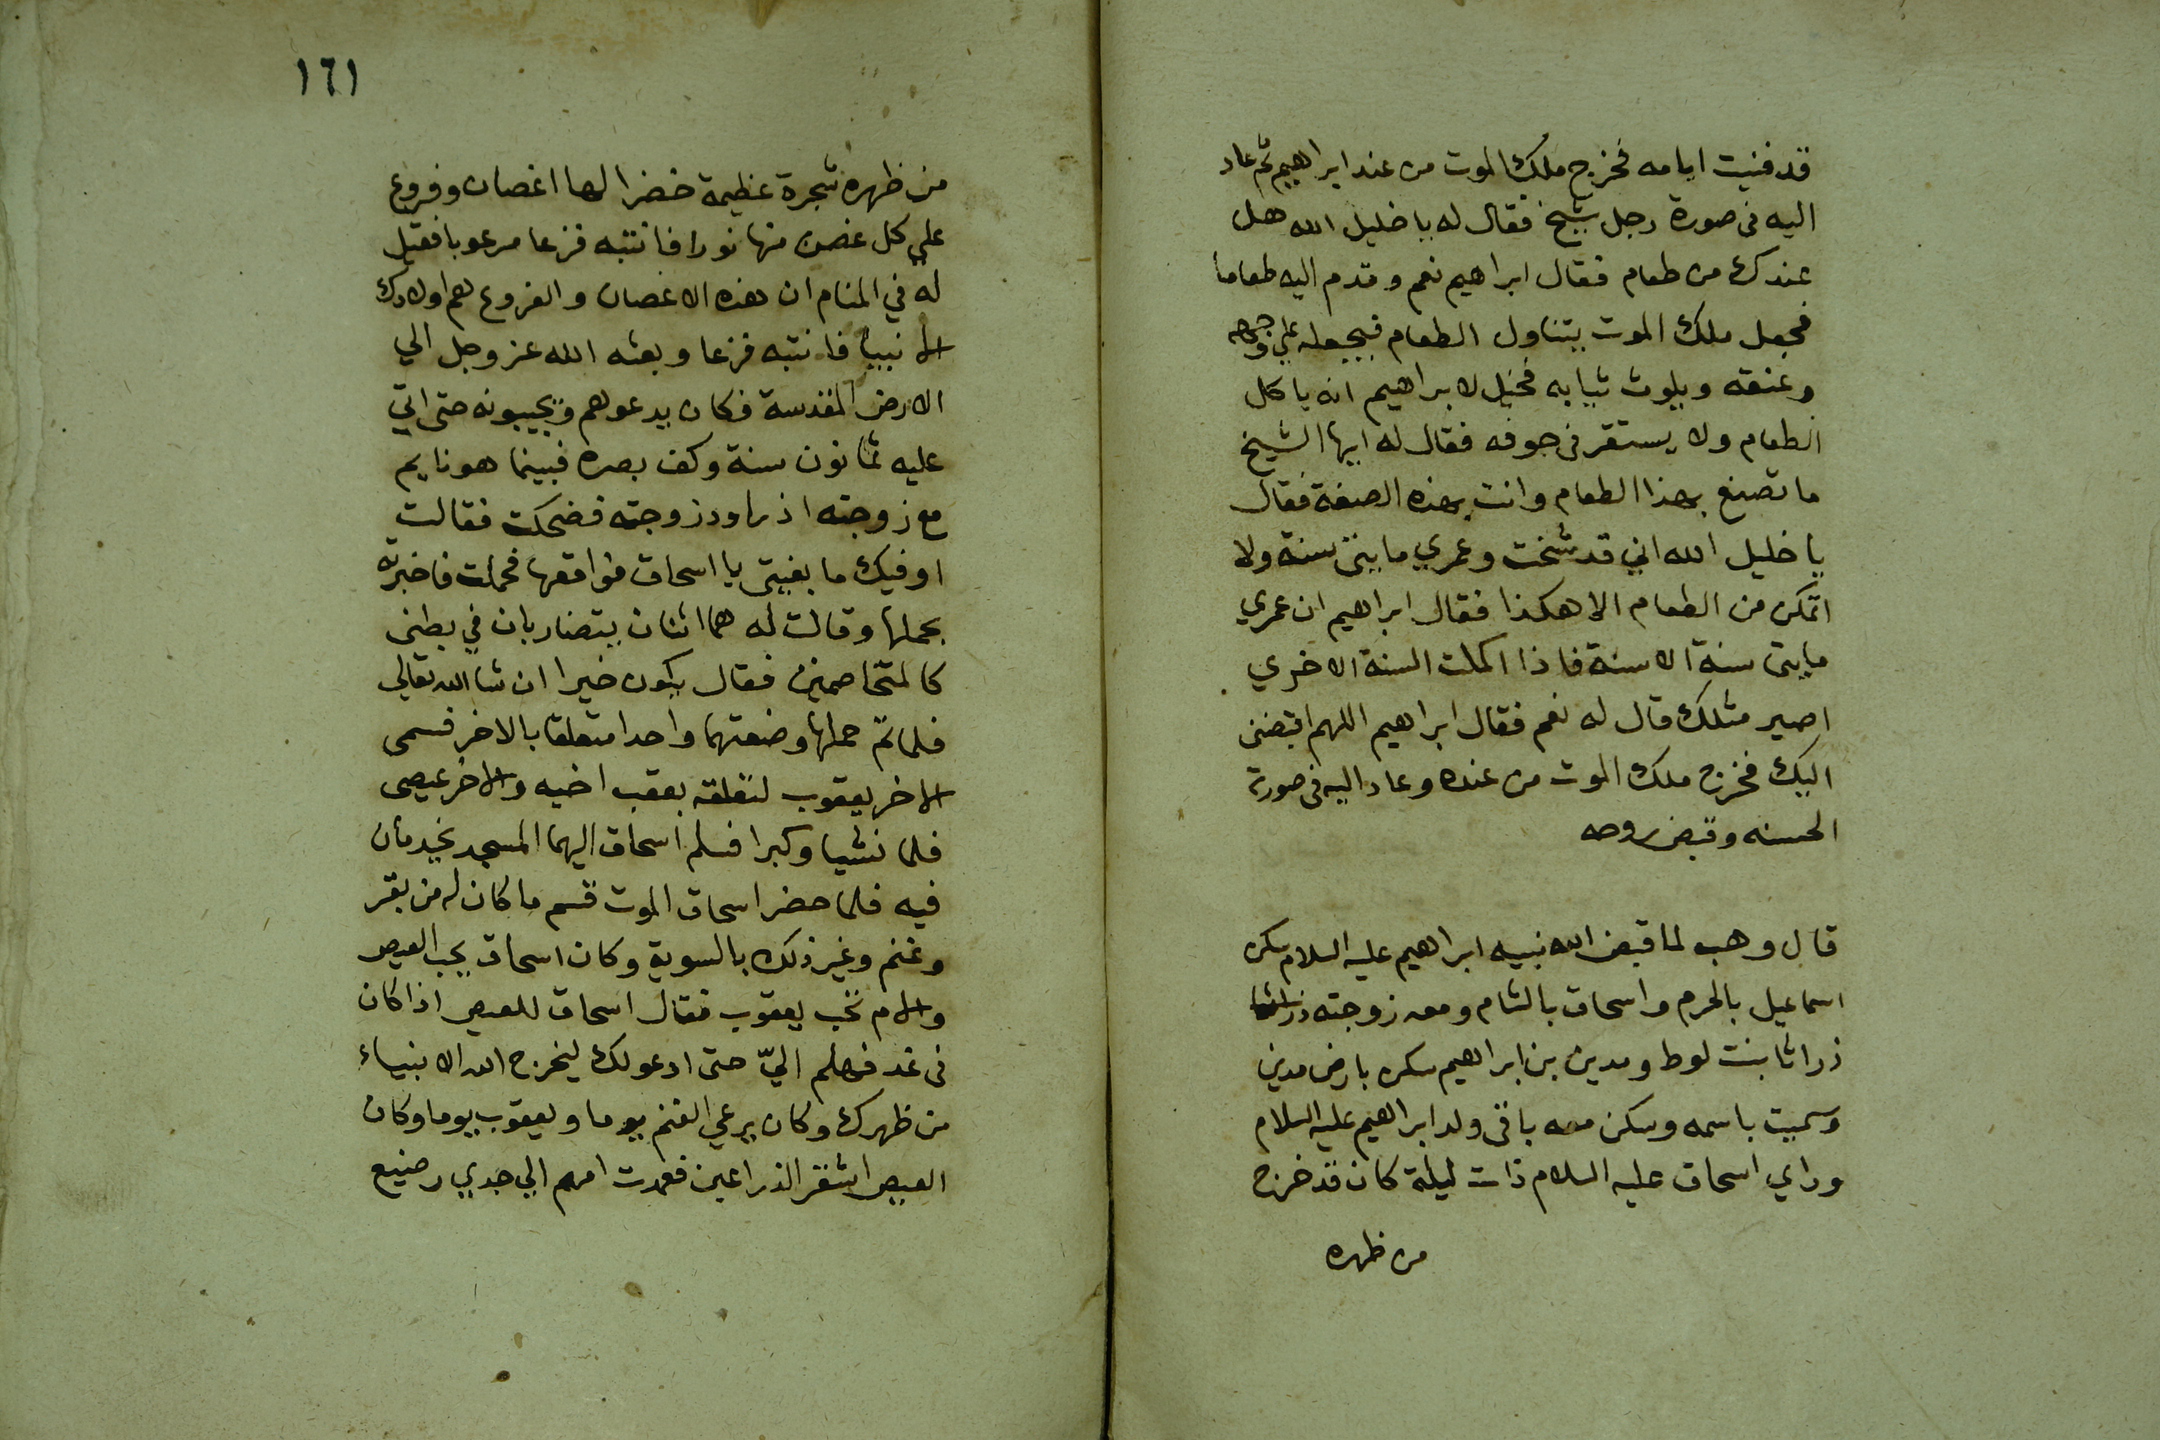 قد فنيت ايامه فخرج ملك الموت من عند ابراهيم ثم عاد
اليه فى صورة رجل شيخ فقال له يا خليل الله هل
عندك من طعام فقال ابراهيم نعم وقدم اليه طعاما
فجعل ملك الموت يتناول الطعام فيجعله علي وجهه
وعنقه ويلوث ثيابه فخيل لابراهيم انه ياكل
الطعام ولا يستقر فى جوفه فقال له ايها الشيخ
ما تصنع بهذا الطعام وانت بهذه الصفة فقال
يا خليل الله اني قد شخت وعمري مايتى سنة ولا
اتمكن من الطعام الا هكذا فقال ابراهيم ان عمري
مايتى سنة الا سنة فاذا اكملت السنة الاخري
اصير مثلك قال له نعم فقال ابراهيم اللهم اقبضنى
اليك فخرج ملك الموت من عنده وعاد اليه فى صورته
الحسنه وقبض روحه
قال وهب لما قبض الله نبيه ابراهيم عليه السلام سكن
اسماعيل بالحرم واسحاق بالشام ومعه زوجته
ذراثا بنت لوط ومدين بن ابراهيم سكن بارض مدين
وسميت باسمه وسكن معه باقى ولد ابراهيم عليه السلام
وراي اسحاق عليه السلام ذات ليلة كان قد خرج
من ظهره
١٦١
من ظهره شجرة عظيمة خضرا لها اغصان وفروع
علي كل غصن منها نورا فانتبه فزعا مرعوبا فقيل
له في المنام ان هذه الاغصان والفروع هم اولادك
الا نبيا فانتبه فزعا وبعثه الله عز وجل الي
الارض المقدسة فكان يدعوهم ويجيبونه حتى اتي
عليه ثمانون سنة وكف بصره فبينما هو نايم
مع زوجته اذ راود زوجته فضحكت فقالت
اوفيك ما بغيتى يا اسحاق فواقعها فحملت فاخبرته
بحملها وقالت له هما اثنان يتضاربان في بطنى
كالمتخاصمين فقال يكون خيرا ان شا الله تعالى
فلما تم حملها وضعتهما واحدا متعلقا بالاخر فسمى
الاخر يعقوب لتعلقه بعقب اخيه والاخر عيصى
فلما نشيا وكبرا فسلم اسحاق اليهما المسجد يخدمان
فيه فلما حضر اسحاق الموت قسم ما كان له من بقر
وغنم وغير ذلك بالسوية وكان اسحاق يحب العيص
والام تحب يعقوب فقال اسحاق للعيص اذا كان
فى غد فهلم اليّ حتى ادعو لك ليخرج الله الانبياء
من ظهرك وكان يرعي الغنم يوما ويعقوب يوما وكان
العيص اشقر الذراعين فعمدت امهم الي جدي رضيع